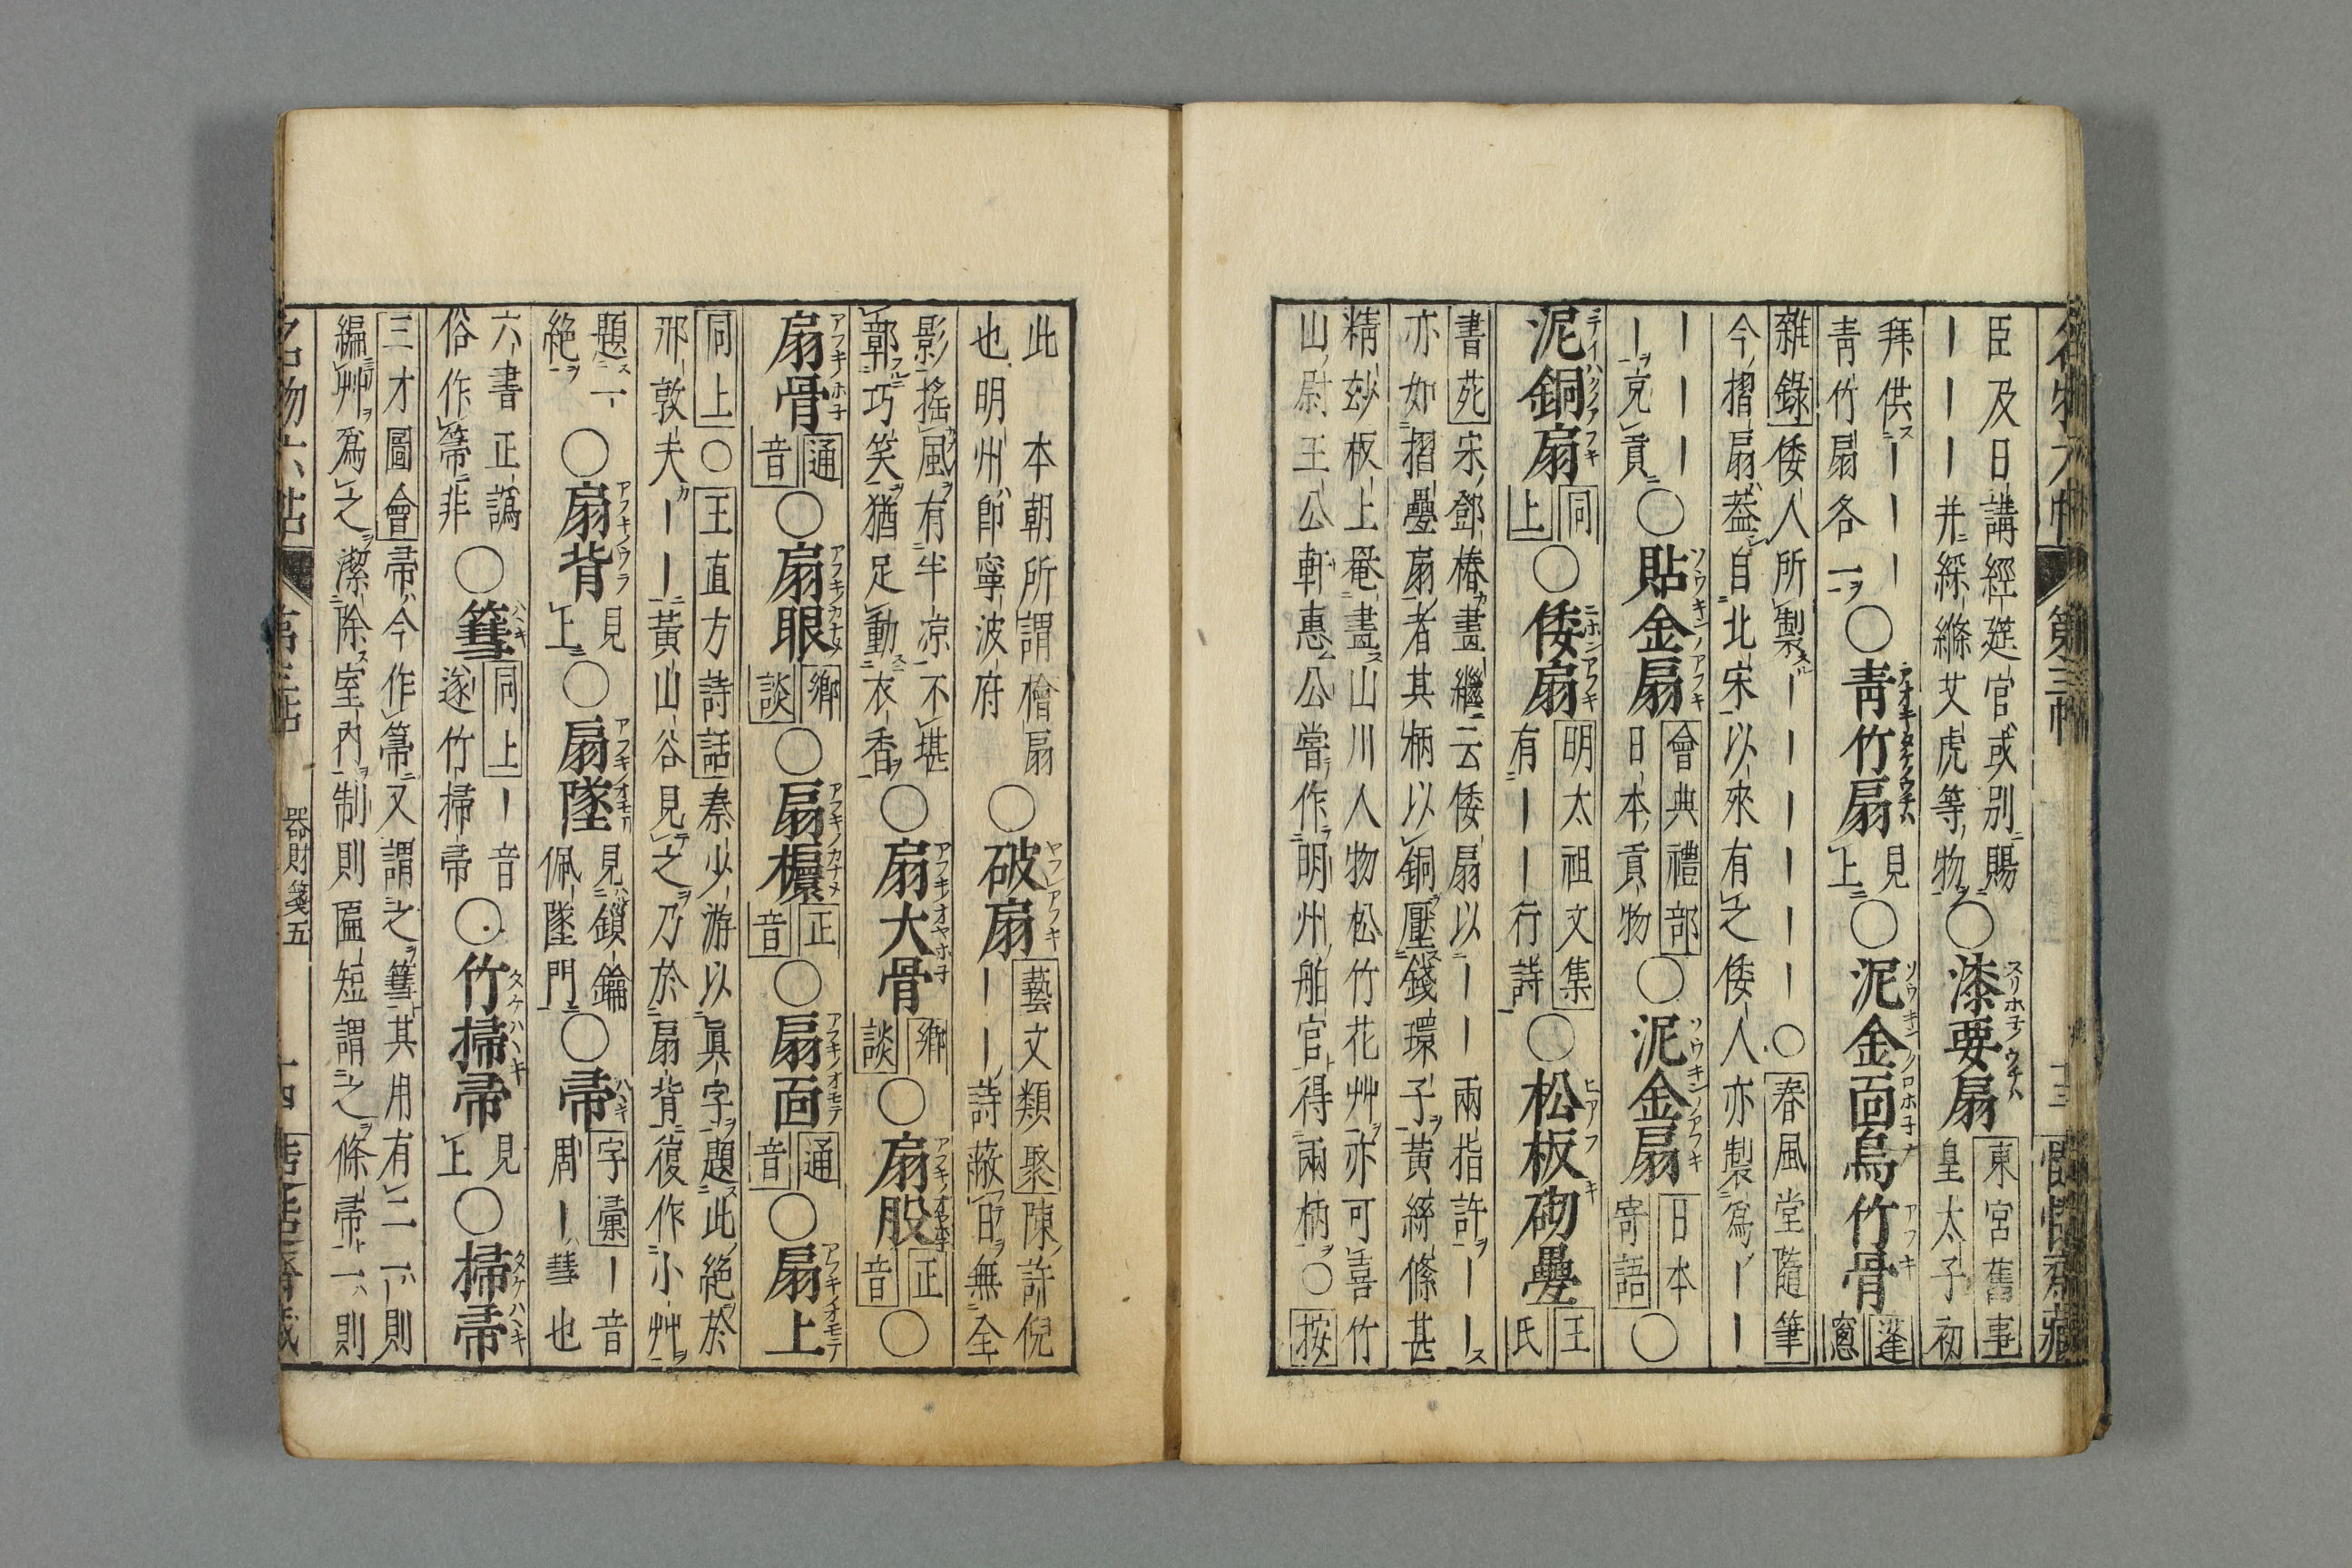 名物六帖 第三帖 十三
臣及日講經筵官或別賜
ーーー并綵縧艾虎等物
○漆要扇
東宮舊事
皇太子初
拜供ーーー
青竹扇各一
○青竹扇
見上
○泥金面烏竹骨
蓬窻
雜錄倭人所製ーーーーー○春風堂隨筆
今摺扇蓋自北宋以來有之倭人亦製爲ーー
ーーー
ー充貢
○貼金扇
會典禮部
日本貢物
○泥金扇
日本寄語
○泥銅扇
同上
○倭扇
明太祖文集
有ーー行詩
○松板砌疊
王氏
書苑宋鄧椿畫繼云倭扇以ーー兩指許ーー
亦如摺疊扇者其柄以銅壓錢環子黃絲絛甚
精玅板上罨畫山川人物松竹花艸亦可喜竹
山尉王公軒惠公嘗作明州舶官得兩柄○按
此本朝所謂檜扇
也明州卽寧波府
○破扇
藝文類聚陳許倪
ーー詩蔽日無全
影搖風有半凉不堪
鄣巧笑猶足動衣香
○扇大骨
鄉談
○扇股
正音
○扇骨
通音
○扇眼
鄉談
○扇
正音
○扇面
通音
○扇上
同上○王直方詩話秦少游以眞字題此絕於
邢敦夫ーー黃山谷見之乃於扇背復作小艸
題一
絕
○扇背
見上
○扇墜
見鎖鑰
佩墜門
○帚
字彙ー音
周ー彗也
六書正譌
俗作箒非
○篲
同上ー音
遂竹掃帚
○竹掃帚
見上
○掃帚
三才圖會帚今作箒又謂之篲其用有二一則
編艸爲之潔除室內制則匾短謂之條帚一則
名物六帖 第三帖 器財箋五 十四